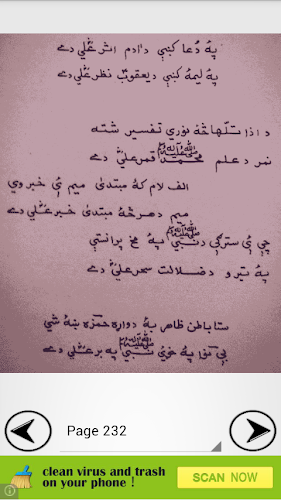 په دُعا کښې د آدم اثر عَلي دے
په ليمه کښې د يعقوبؑ نظر عَلي دے
د اذا تلها څه نورې تفسير شته
نمر د علم محمد ﷺ قمر علي دے
الف لام که مبتدیٰ ميم ئې خبر وي
ميم د هر څه مبتدیٰ خبر عَلي دے
چې ئې سترګې د نبي ﷺ په مخ پرانتې
په تيرو د ضلالت سحر علي دے
ستا باطن ظاهر به دواړه حمزه ښه شي
نبي ﷺ په بر علي دے
Page 232
clean virus and trash
on your phone !
SCAN NOW